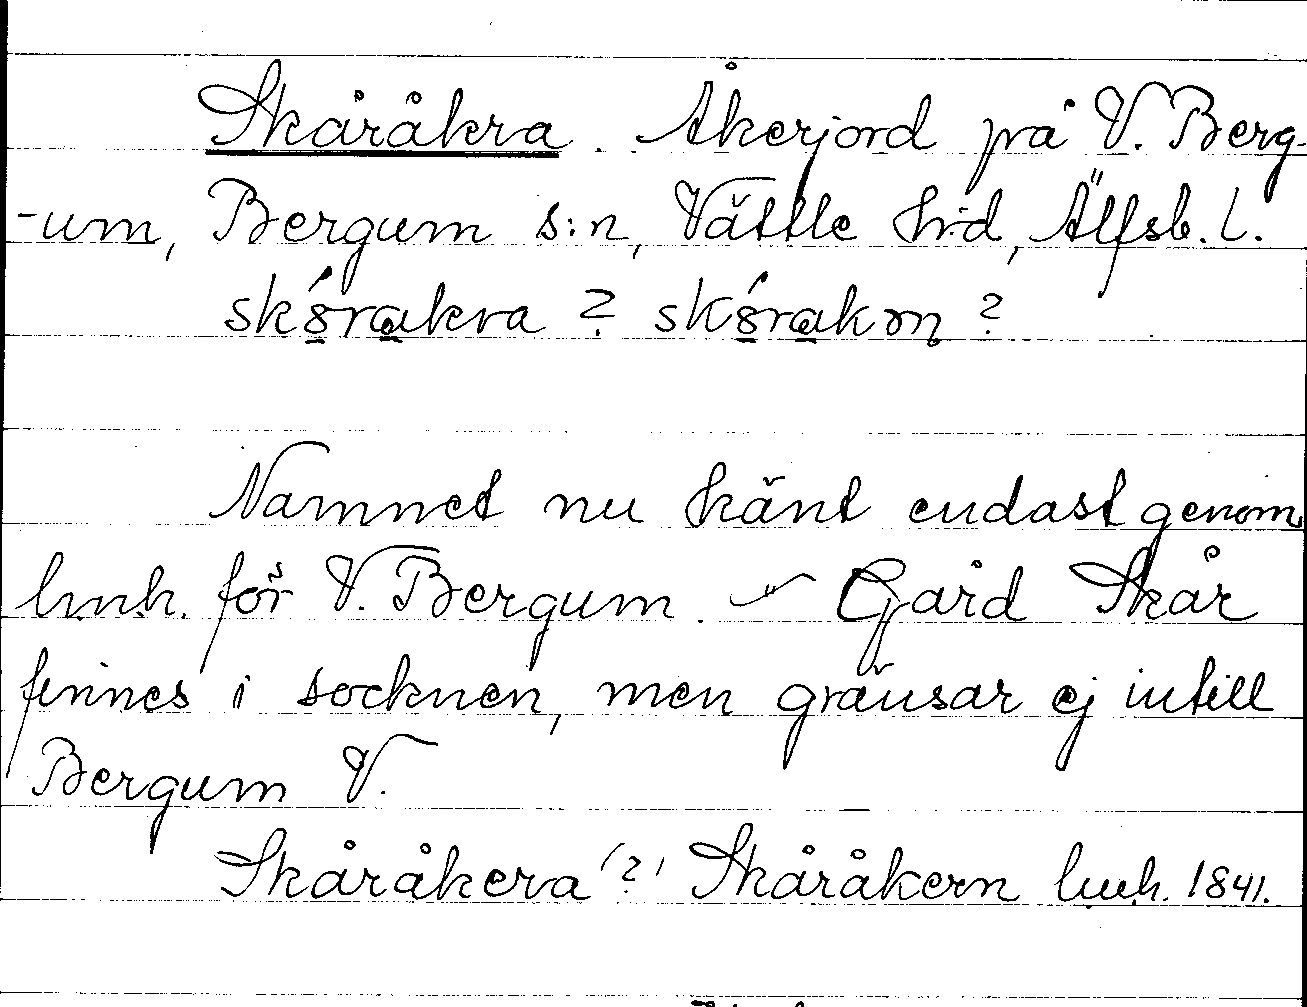 Skåråkra. Åkerjord på V. Berg-
-um, Bergum s:n, Vättle h:d, Älfsb. l.
skǿrakra ? skǿrakrn ?
Namnet nu känt endast genom
lmh. för V. Bergum. Gård Skår
finnes i socknen, men gränsar ej intill
Bergum V.
Skåråkera (?) Skåråkern lmh. 1841.